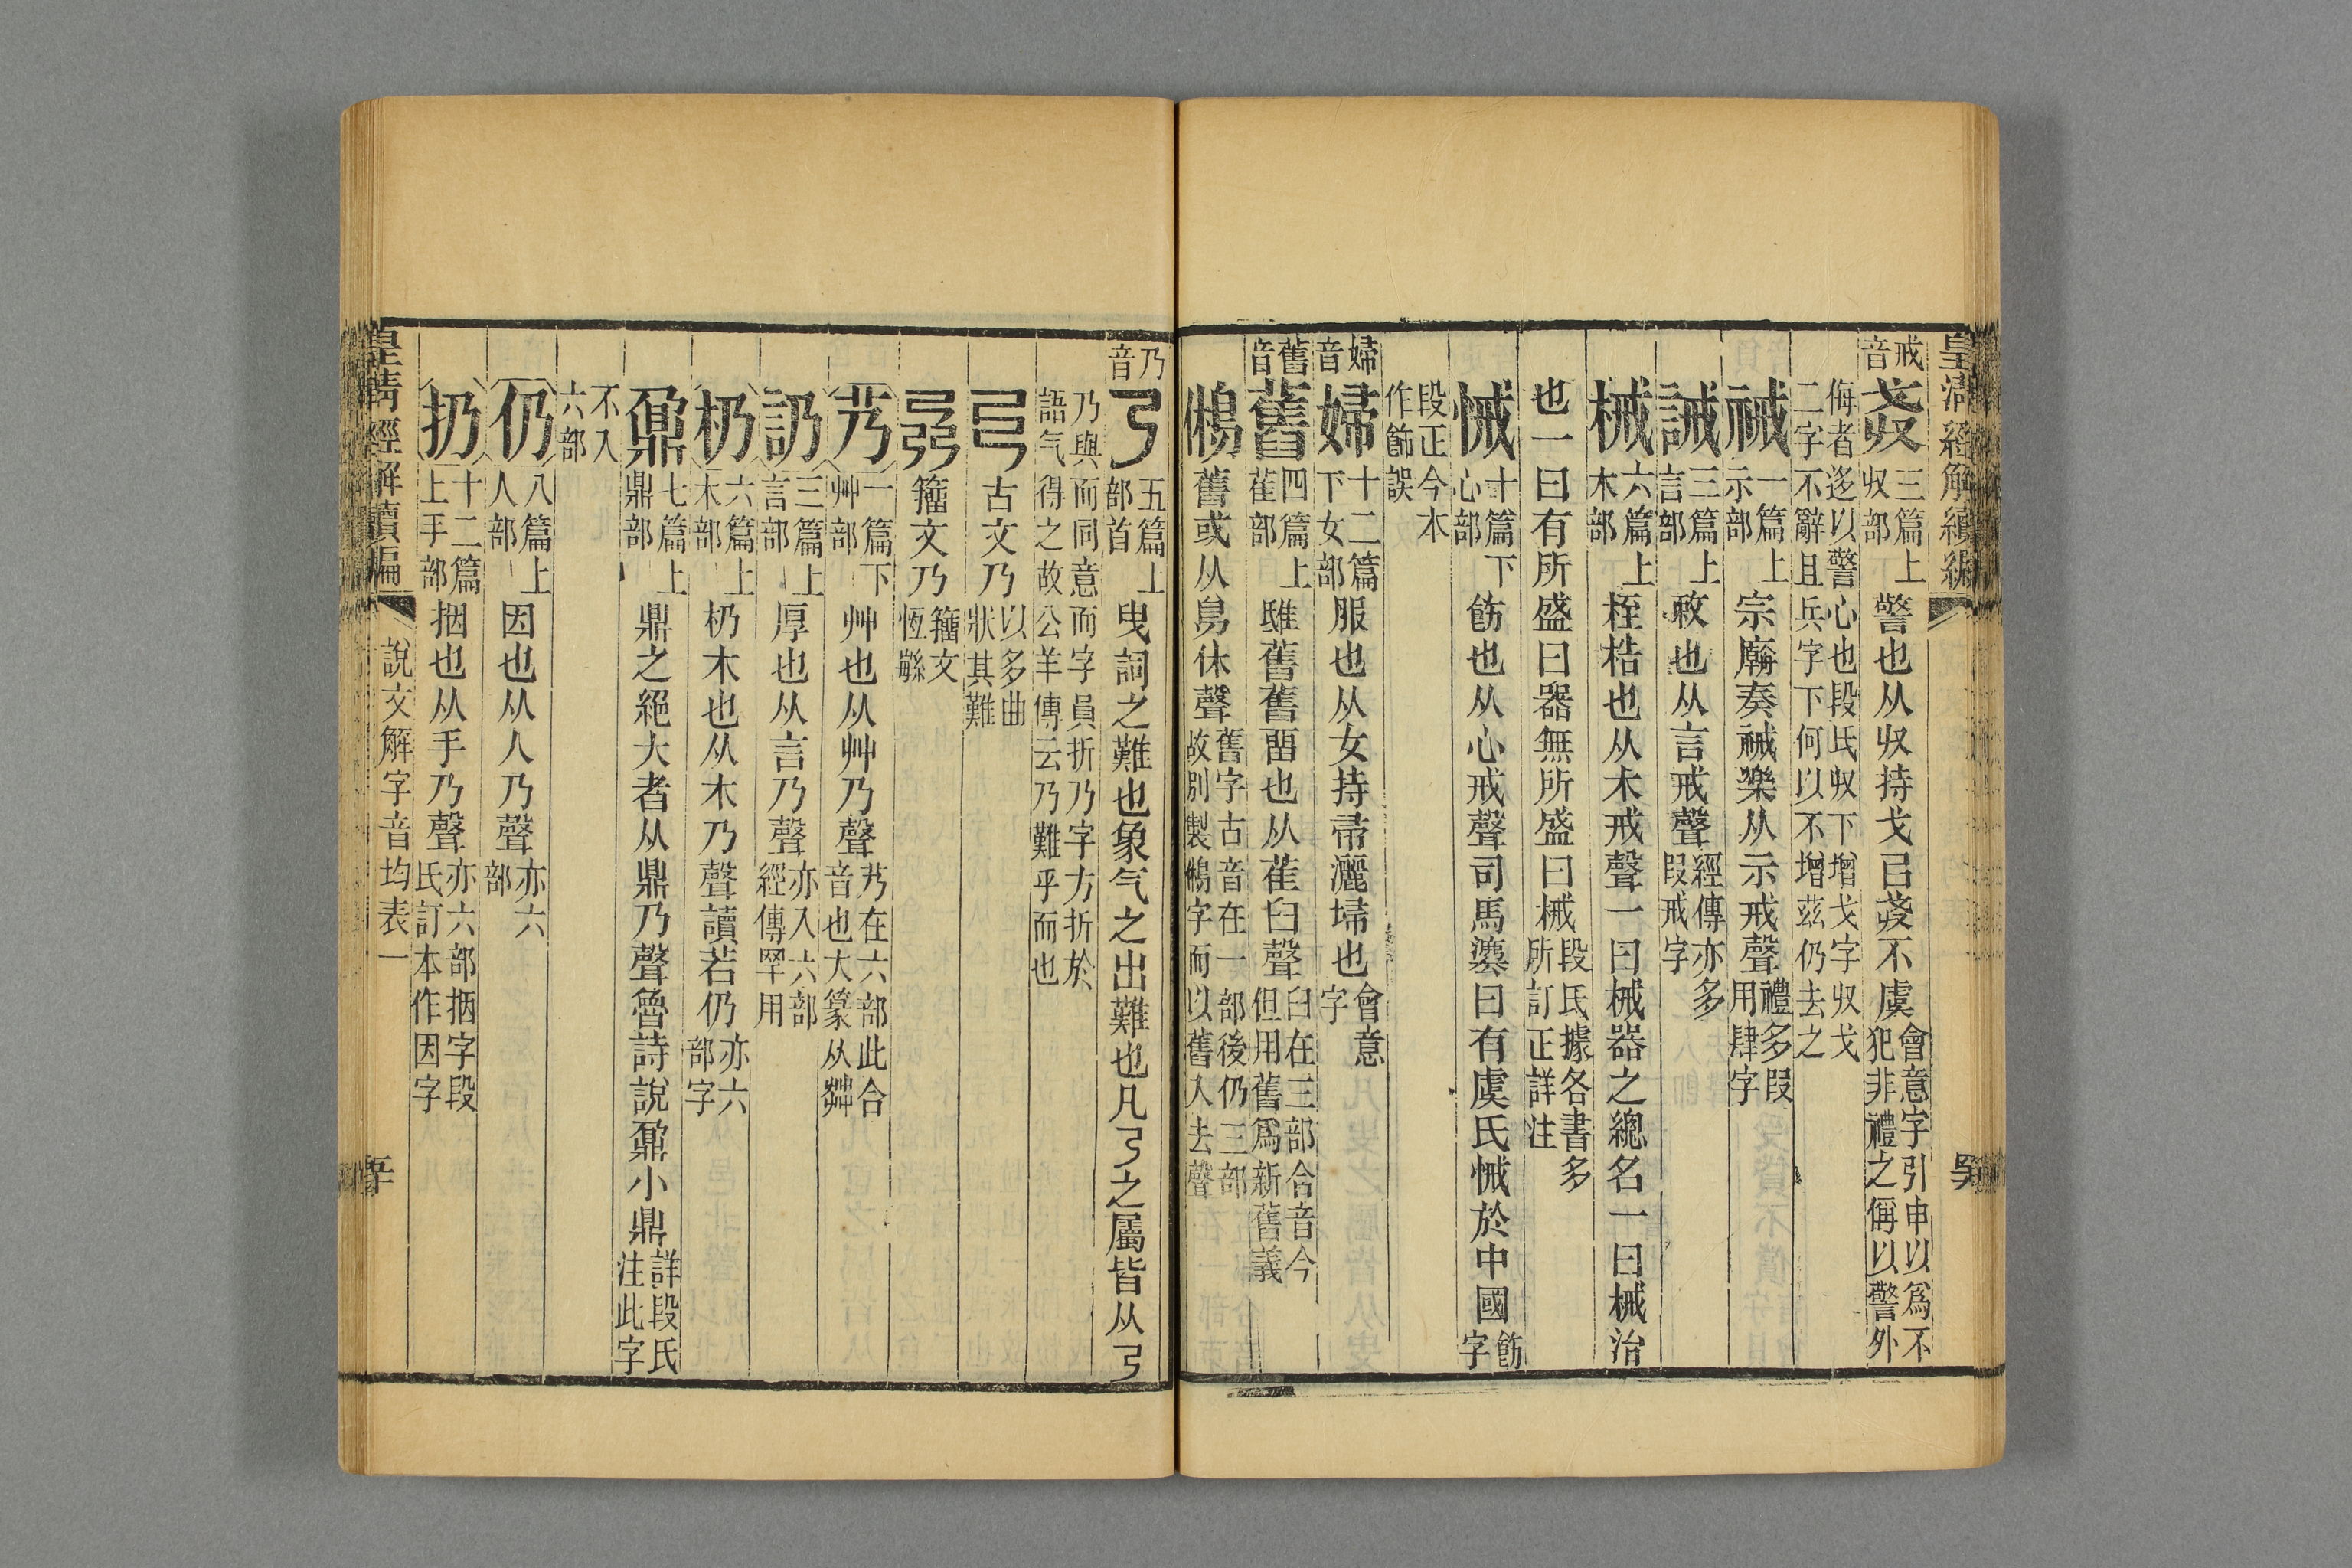 皇淸經解續編
戒音
𢦦三篇上収部警也从収持戈㠯𢦦不虞會意字引申以爲不犯非禮之偁以警外
侮者迻以警心也段氏収下增戈字収戈二字不辭且兵字下何以不增茲仍去之
祴一篇上示部宗廟奏祴樂从示戒聲禮多叚用肆字
誡三篇上言部敕也从言戒聲經傳亦多叚戒字
械六篇上木部桎梏也从木戒聲一曰械器之總名一曰械治
也一曰有所盛曰器無所盛曰械段氏據各書多所訂正詳注
悈十篇下心部飭也从心戒聲司馬灋曰有虞氏悈於中國飭字
段正今本作飾誤
婦音
婦十二篇下女部服也从女持帚灑埽也會意字
舊音
舊四篇上萑部鴟舊舊畱也从萑臼聲臼在三部合音今但用舊爲新舊義
鵂舊或从鳥休聲舊字古音在一部後仍三部故別製鵂字而以舊入去聲
乃音
𠄎五篇上部首曳詞之難也象气之出難也凡𠄎之屬皆从𠄎
乃與而同意而字員折乃字方折於語气得之故公羊傳云乃難乎而也
𠄕古文乃以多曲狀其難
𠄖籒文乃籒文恆緐
艿一篇下艸部艸也从艸乃聲艿在六部此合音也大篆从茻
訒三篇上言部厚也从言乃聲亦入六部經傳罕用
杒六篇上木部杒木也从木乃聲讀若仍亦六部字
鼐七篇上鼎部鼎之絕大者从鼎乃聲魯詩說鼐小鼎詳段氏注此字
不入六部
仍八篇上人部因也从人乃聲亦六部
扔十二篇上手部捆也从手乃聲亦六部捆字段氏訂本作因字
皇淸經解續編
說文解字音均表一